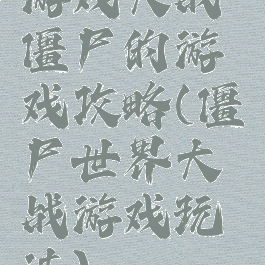 游戏大战
僵尸的游
戏攻略(僵
尸世界大
战游戏玩
法)